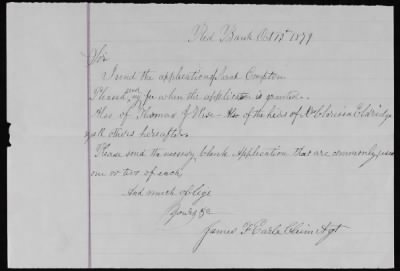 Red Bank Oct 13th 1879
Sir
I send the application of Compton
Please send my fee when the application is granted.
Also of Thomas J West - Also of the heirs of Clarissa Eldridge
& all others hereafter
Please send the necessary blank Application that are commonly used
one or two of each
And much oblige
Yours &c
James F Earle Claim Agt